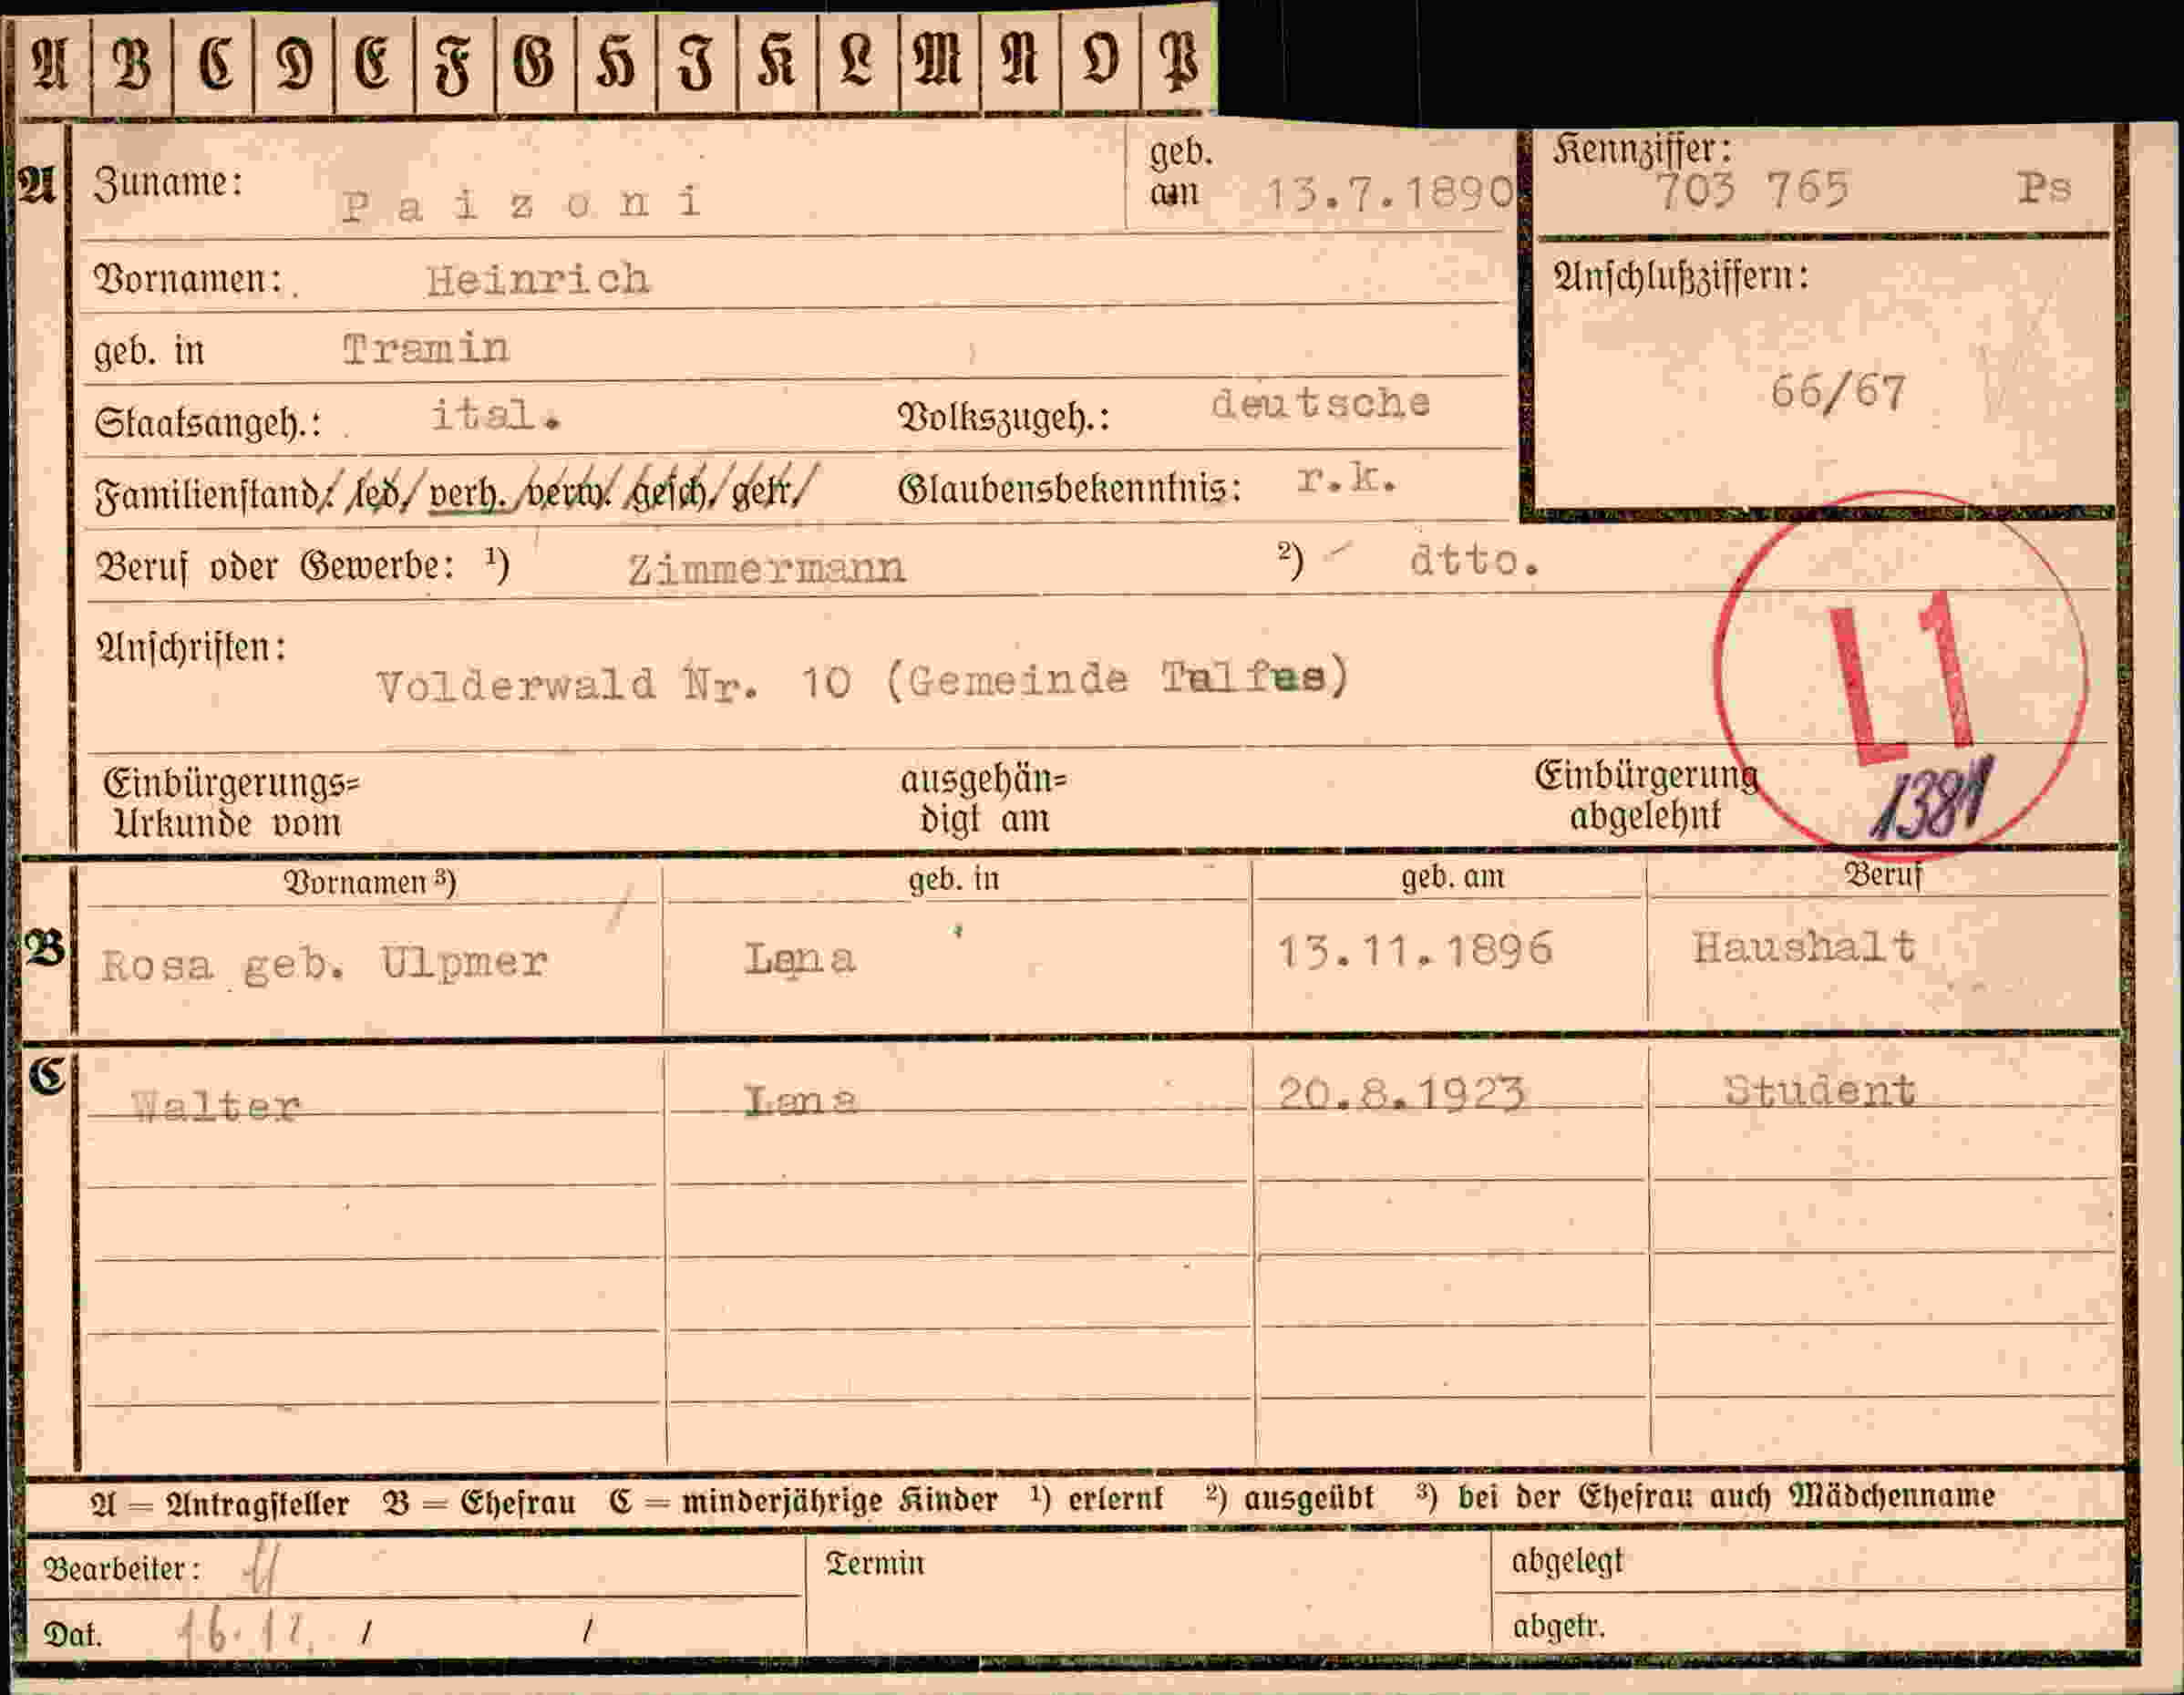 A B C D E F G H I K L M N O P
A
Zuname: Paizoni geb. am 13.7.1890
Kennziffer: 703 765 Ps
Vornamen: Heinrich
Anschlußziffern: 66/67
geb. in Tramin
Staatsangeh.: ital. Volkszugeh.: deutsche
Familienstand: led. verh. verw. gesch. getr. Glaubensbekenntnis: r.k.
Beruf oder Gewerbe: 1) Zimmermann 2) dtto.
Anschriften:
Volderwald Nr. 10 (Gemeinde Tulfes)
L1
Einbürgerungs=
Urkunde vom
ausgehän=
digt am
Einbürgerung
abgelehnt
Vornamen 3) geb. in geb. am Beruf
B
Rosa geb. Ulpmer Lana 13.11.1896 Haushalt
C
Walter Lana 20.8.1923 Student
A = Antragsteller B = Ehefrau C = minderjährige Kinder 1) erlernt 2) ausgeübt 3) bei der Ehefrau auch Mädchenname
Bearbeiter:
Termin
abgelegt
Dat. 16.12. / /
abgetr.